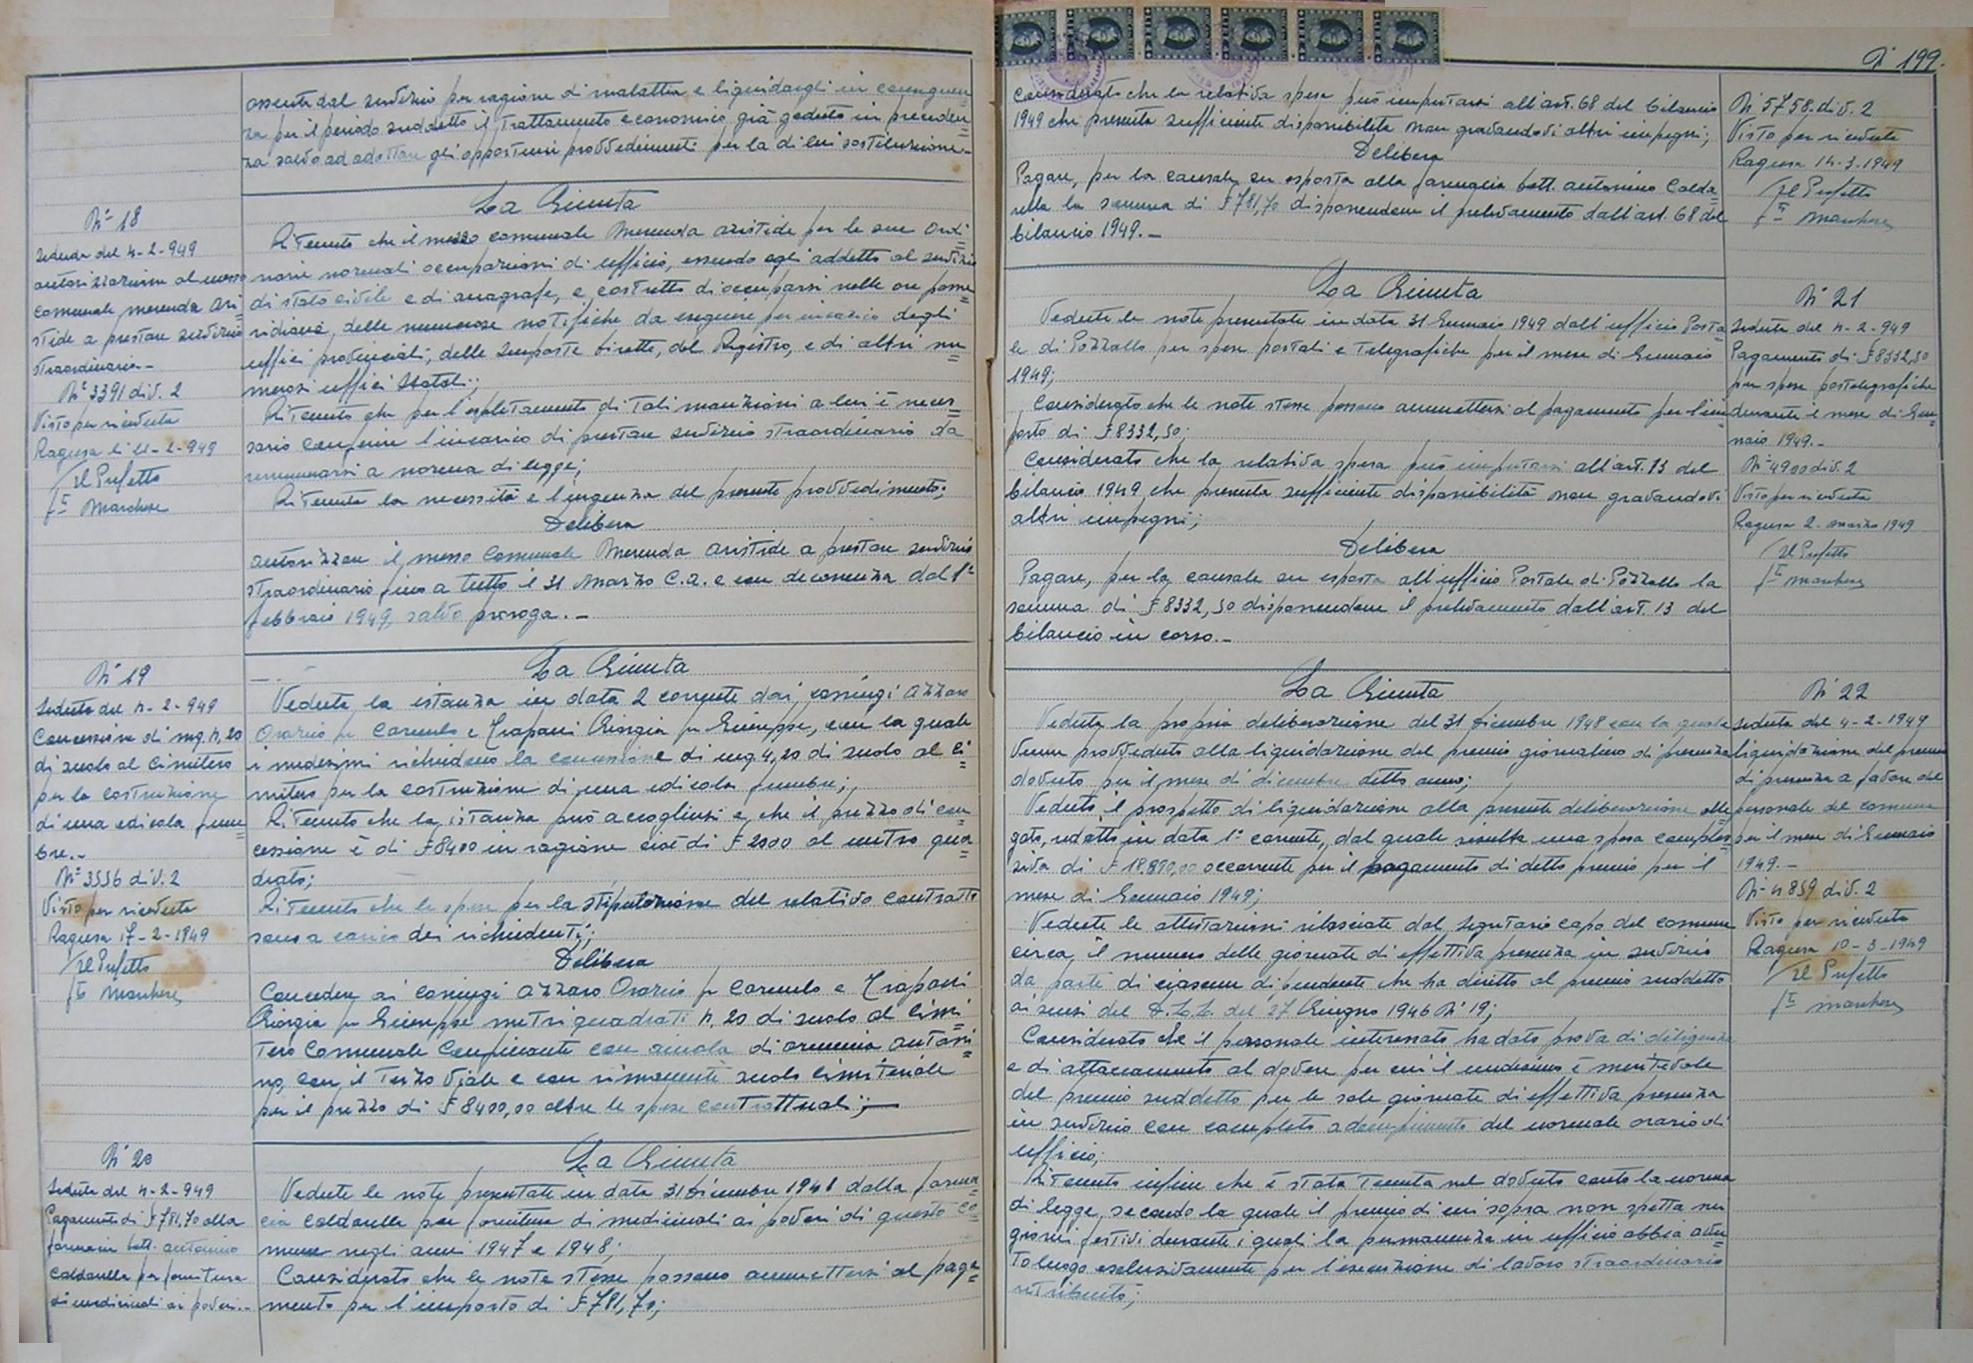 assente dal servizio per ragione di malattia e liquidargli in conseguen=
za per il periodo suddetto il trattamento economico già goduto in preceden=
za salvo ad adottare gli opportuni provvedimenti per la di lui sostituzione.
N° 18
Seduta del 4-2-949
autorizzazione al messo
comunale Merenda Ari=
stide a prestare servizio
straordinario.-
N° 3391 div. 2
Visto per ricevuta
Ragusa li 11-2-949
Il Prefetto
La Giunta
Ritenuto che il messo comunale Merenda Aristide per le sue ordi=
narie normali occupazioni di ufficio, essendo egli addetto al servizio
di stato civile e di anagrafe, è costretto di occuparsi nelle ore pome=
ridiane, delle numerose notifiche da eseguire per incarico degli
uffici provinciali, delle Imposte Dirette, del Registro, e di altri nu=
merosi uffici Statali;
Ritenuto che per l'espletamento di tali mansioni a lui è neces=
sario conferire l'incarico di prestare servizio straordinario da
remunerarsi a norma di legge;
Ritenuta la necessità e l'urgenza del presente provvedimento;
Delibera
autorizzare il messo Comunale Merenda Aristide a prestare servizio
straordinario fino a tutto il 31 Marzo c.a. e con decorrenza dal 1°
febbraio 1949, salvo proroga.-
N° 19
Seduta del 4-2-949
Concessione di mq. 4,20
di suolo al Cimitero
per la costruzione
di una edicola fune=
bre.-
N° 3556 div. 2
Visto per ricevuta
Ragusa 17-2-1949
Il Prefetto
La Giunta
Veduta la istanza in data 2 corrente dai coniugi Azzaro
Orazio fu Carmelo e Trapani Giorgia fu Giuseppe, con la quale
i medesimi richiedono la concessione di mq 4,20 di suolo al Ci=
mitero per la costruzione di una edicola funebre;
Ritenuto che la istanza può accogliersi e che il prezzo di con=
cessione è di £ 8400 in ragione cioè di £ 2000 al metro qua=
drato;
Ritenuto che le spese per la stipulazione del relativo contratto
sono a carico dei richiedenti;
Delibera
Concedere ai coniugi Azzaro Orazio fu Carmelo e Trapani
Giorgia fu Giuseppe metri quadrati 4,20 di suolo al Cimi=
tero Comunale Confinante con di Antoni=
no, con il Terzo Viale e con rimanente suolo cimiteriale
per il prezzo di £ 8400,00 oltre le spese contrattuali;
N° 20
Seduta del 4-2-949
Pagamento di £ 781,70 alla
farmacia Dott. Antonino
Caldarella per fornitura
di medicinali ai poveri.-
La Giunta
Vedute le note presentate in data 31 Dicembre 1948 dalla farma=
cia Caldarella per fornitura di medicinali ai poveri di questo Co=
mune negli anni 1947 e 1948;
Considerato che le note stesse possono ammettersi al paga=
mento per l'importo di £ 781,70;
N° 199.
Considerato che la relativa spesa può imputarsi all'art. 68 del bilancio
1949 che presenta sufficiente disponibilità non gravandovi altri impegni;
Delibera
Pagare, per la causale su esposta alla farmacia Dott. Antonino Calda=
rella la somma di £ 781,70 disponendone il prelevamento dall'art. 68 del
bilancio 1949.-
N° 5758. div. 2
Visto per ricevuta
Ragusa 14-3-1949
Il Prefetto
La Giunta
Vedute le note presentate in data 31 Gennaio 1949 dall'ufficio Posta=
le di Pozzallo per spese postali e telegrafiche per il mese di Gennaio
1949;
Considerato che le note stesse possono ammettersi al pagamento per l'im=
porto di £ 8332,50;
Considerato che la relativa spesa può imputarsi all'art. 13 del
bilancio 1949, che presenta sufficiente disponibilità non gravandovi
altri impegni;
Delibera
Pagare, per la causale su esposta all'ufficio Postale di Pozzallo la
somma di £ 8332,50 disponendone il prelevamento dall'art. 13 del
bilancio in corso.-
N° 21
Seduta del 4-2-949
Pagamento di £ 8332,50
per spese postelegrafiche
durante il mese di Gen=
naio 1949.-
N° 4900 div. 2
Visto per ricevuta
Ragusa 2 marzo 1949
Il Prefetto
La Giunta
Veduta la propria deliberazione del 31 dicembre 1948 con la quale
venne provveduto alla liquidazione del premio giornaliero di presenza
dovuto per il mese di dicembre detto anno;
Veduto il prospetto di liquidazione alla presente deliberazione alle=
gato, redatto in data 1° corrente, dal quale risulta una spesa comples=
siva di £ 18.890,00 occorrente per il pagamento di detto premio per il
mese di Gennaio 1949;
Vedute le attestazioni rilasciate dal Segretario capo del comune
circa, il numero delle giornate di effettiva presenza in servizio
da parte di ciascun dipendente che ha diritto al premio suddetto
ai sensi del D.L.L. del 27 Giugno 1946 N° 19;
Considerato che il personale interessato ha dato prova di diligenza
e di attaccamento al dovere per cui il medesimo è meritevole
del premio suddetto per le sole giornate di effettiva presenza
in servizio con completo adempimento del normale orario di
ufficio;
Ritenuto infine che è stata tenuta nel dovuto conto la norma
di legge, secondo la quale il premio di cui sopra non spetta nei
giorni festivi durante i quali la permanenza in ufficio abbia avu=
to luogo esclusivamente per l'esecuzione di lavoro straordinario
retribuito;
N° 22
Seduta del 4-2-1949
liquidazione del premio
di presenza a favore del
personale del comune
per il mese di Gennaio
1949.-
N° 4859 div. 2
Visto per ricevuta
Ragusa 10-3-1949
Il Prefetto